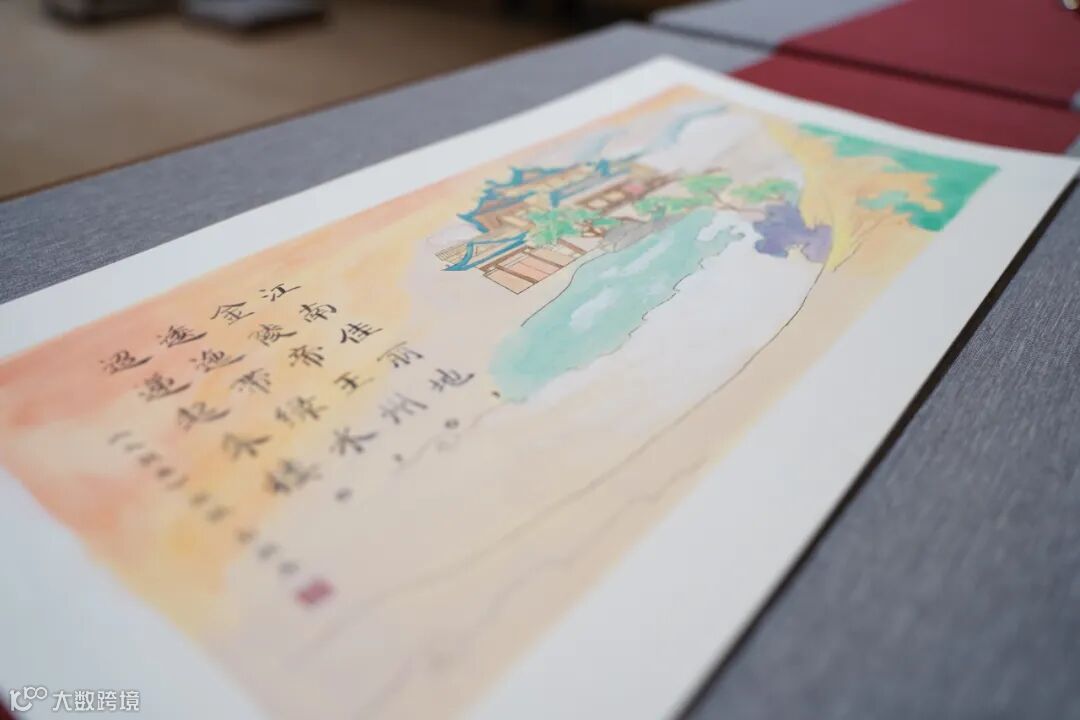 江南佳丽地，
金陵帝王州。
逶迤带绿水，
迢递起朱楼。
大数跨境